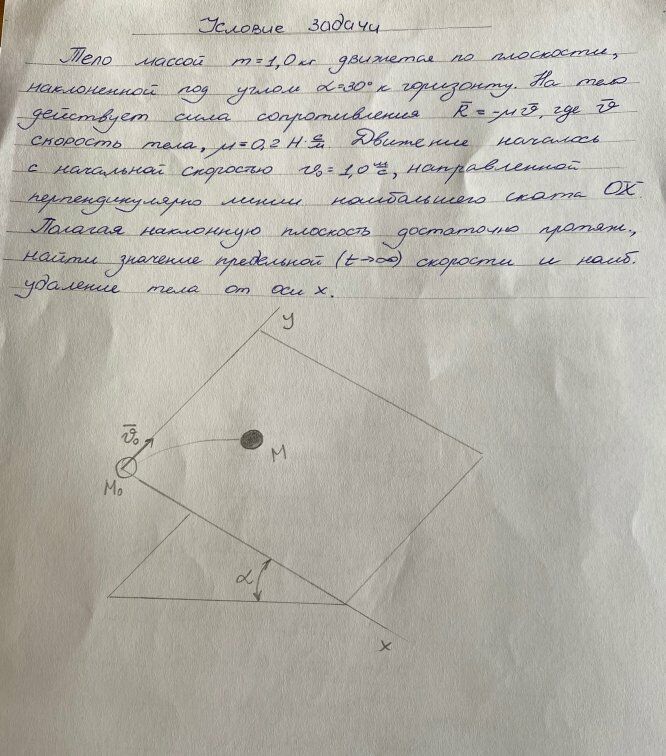 Условие задачи
Тело массой m=1,0 кг движется по плоскости,
наклоненной под углом α=30° к горизонту. На тело
действует сила сопротивления R̅ = -μv̅, где v̅
скорость тела, μ=0,2 Н·с/м. Движение началось
с начальной скоростью v₀=1,0 м/с, направленной
перпендикулярно линии наибольшего ската OX.
Полагая наклонную плоскость достаточно протяж.,
найти значение предельной (t→∞) скорости и наиб.
удаление тела от оси x.
y
v̅₀
M
M₀
α
x